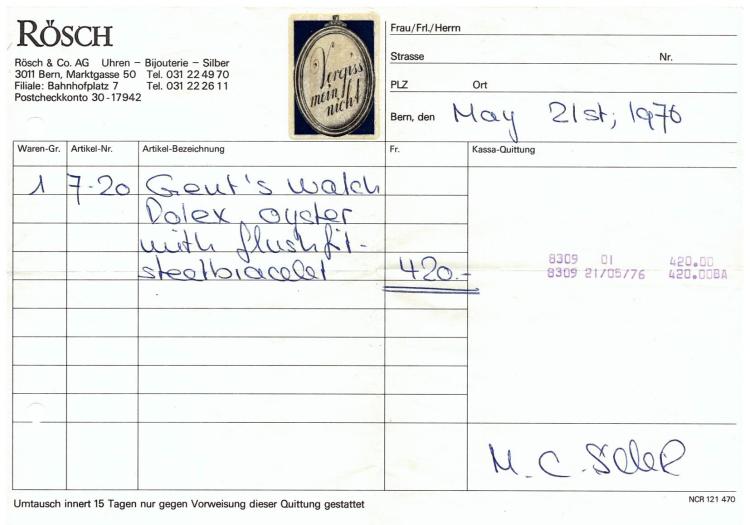 RÖSCH
Rösch & Co. AG Uhren – Bijouterie – Silber
3011 Bern, Marktgasse 50 Tel. 031 22 49 70
Filiale: Bahnhofplatz 7 Tel. 031 22 26 11
Postcheckkonto 30-17942
Vergiss
mein
nicht
Frau/Frl./Herrn
Strasse Nr.
PLZ Ort
Bern, den May 21st, 1976
Waren-Gr. Artikel-Nr. Artikel-Bezeichnung Fr. Kassa-Quittung
1 7-20 Gent's watch
Rolex, oyster
with flushfit-
steelbracelet 420.-
8309 01 420.00
8309 21/05/76 420.00BA
M. C.
Umtausch innert 15 Tagen nur gegen Vorweisung dieser Quittung gestattet
NCR 121 470